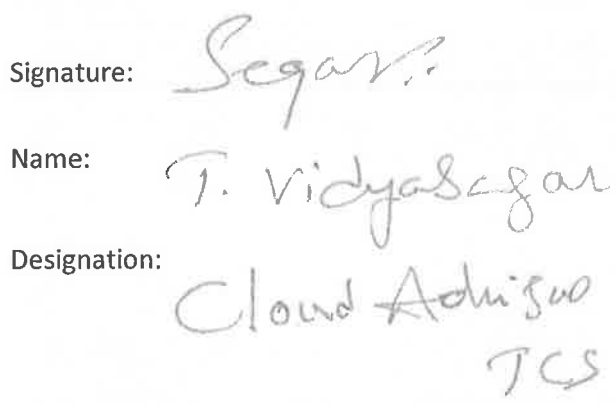 Signature: Segar..
Name: T. Vidyasagar
Designation: Cloud Advisor
TCS